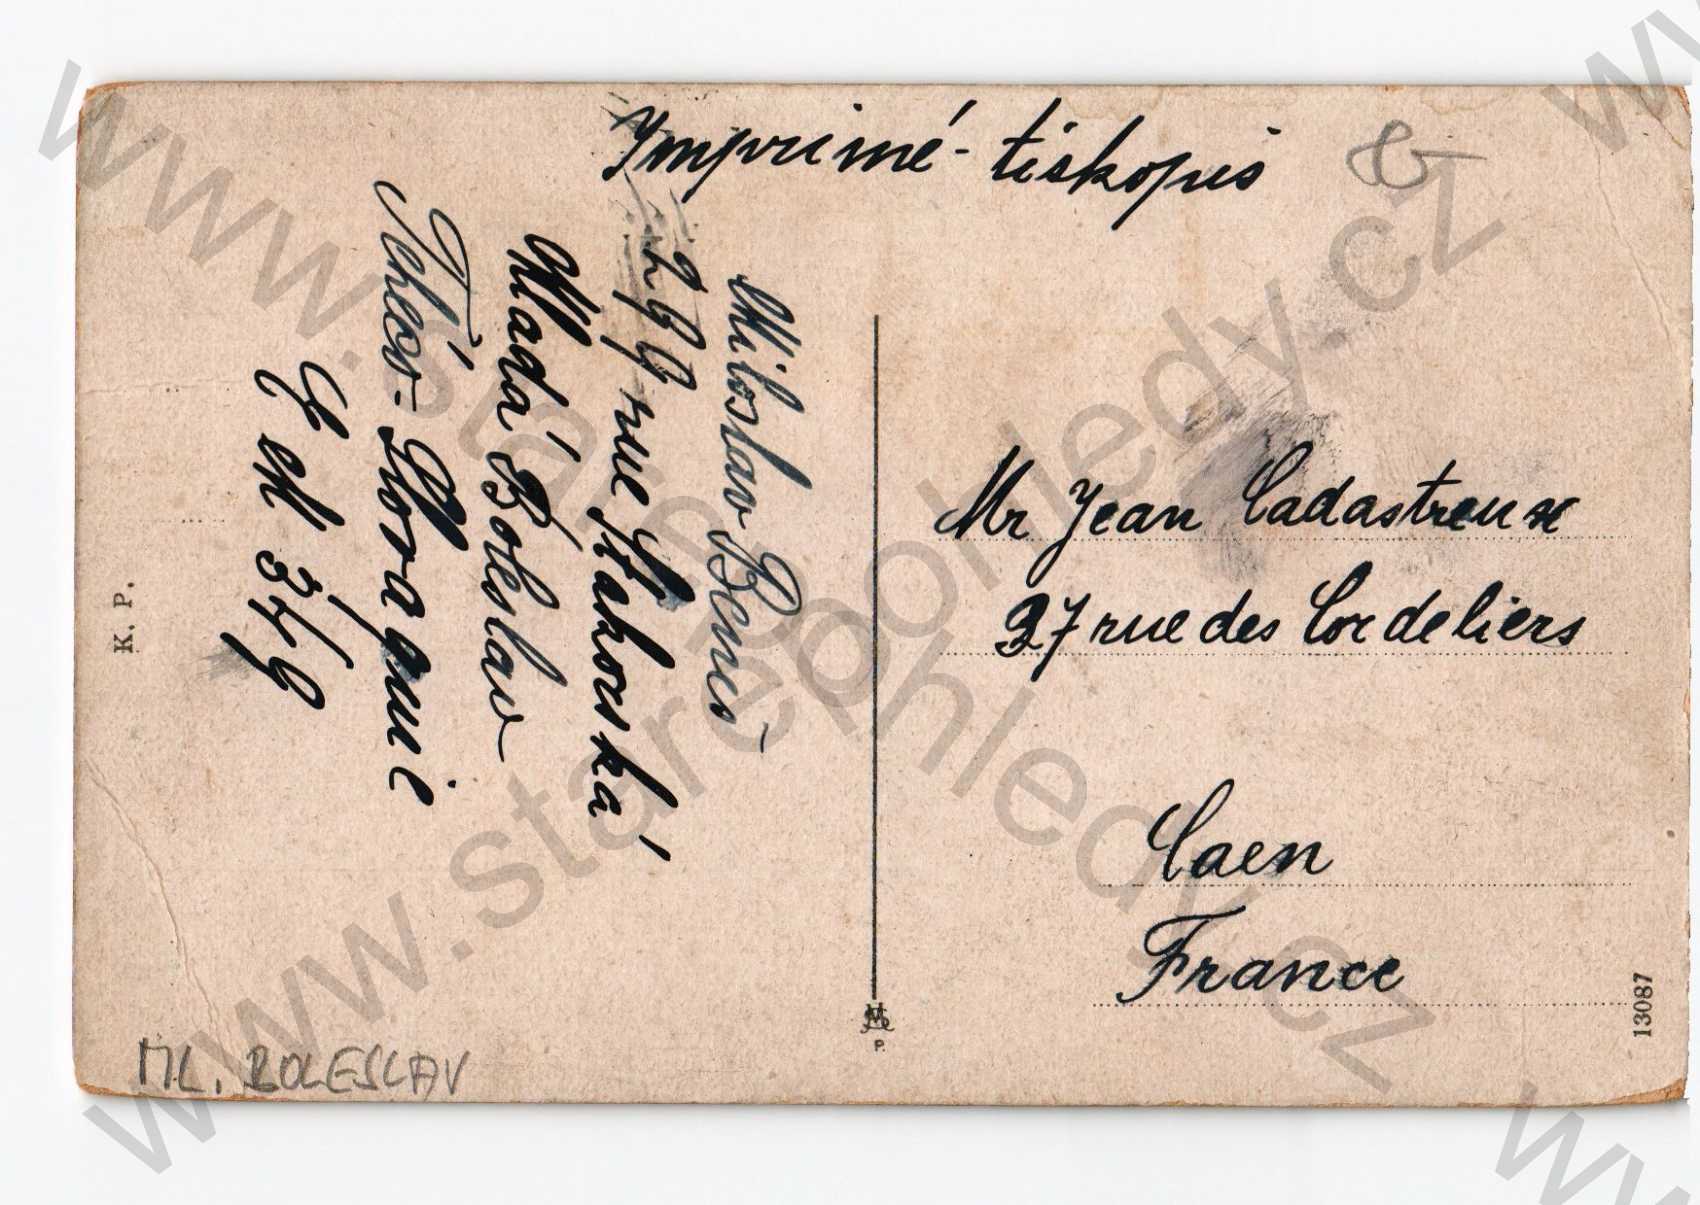 Imprimé - tiskopis
Miloslav Beneš
299 rue Ptahorská
Mladá Boleslav
Tchéco-Slovaquie
Mr Jean Cadastreux
37 rue des Cordeliers
Caen
France
K. P.
P.
13087
ML. BOLESLAV
www.starepohledy.cz
www.starepohledy.cz